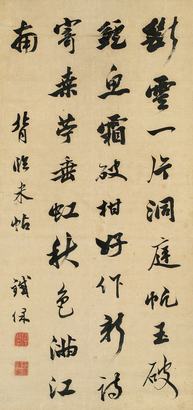 斷雲一片洞庭帆玉破
鱸魚霜破柑好作新詩
寄桑苧垂虹秋色滿江
南
背臨米帖
鐵保